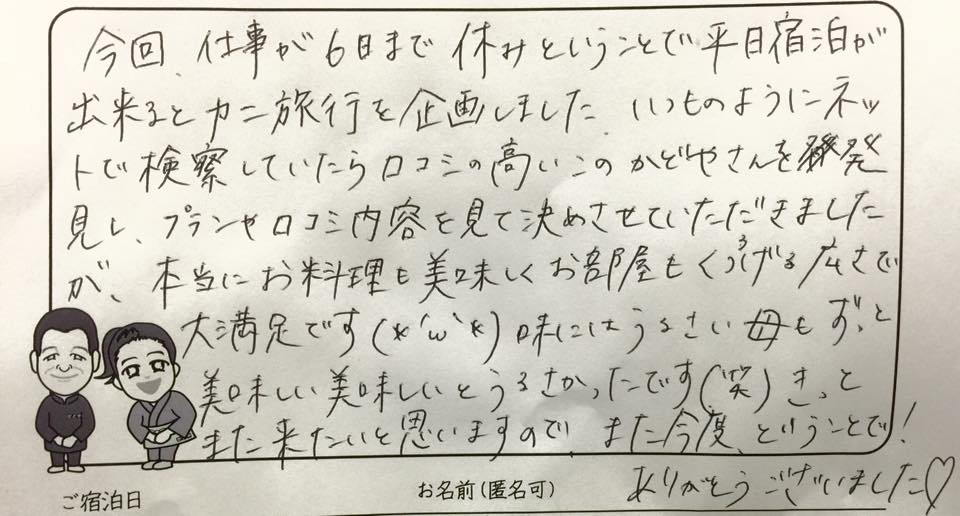 今回、仕事が6日まで休みということで平日宿泊が
出来るとカニ旅行を企画しました、いつものようにネッ
トで検察していたら口コミの高いこのかどやさんを発
見し、プランや口コミ内容を見て決めさせていただきました
が、本当にお料理も美味しくお部屋もくつろげる広さで
大満足です(*´ω`*)味にはうるさい母もずっと
美味しい美味しいとうるさかったです(笑)きっと
また来たいと思いますので、また今度、ということで!
ありがとうございました♡
ご宿泊日
お名前(匿名可)